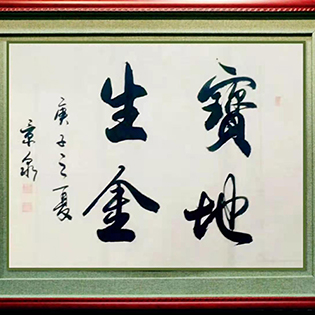 寶地
生金
庚子之夏
京泉